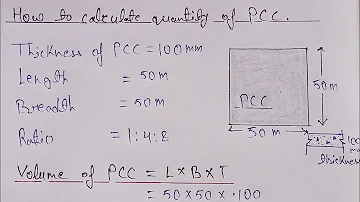 How to calculate quantity of PCC.
Thickness of PCC = 100 mm
Length = 50 m
Breadth = 50 m
Ratio = 1:4:8
Volume of PCC = L × B × T
= 50 × 50 × .100
PCC
50 m
50 m
100
thickness